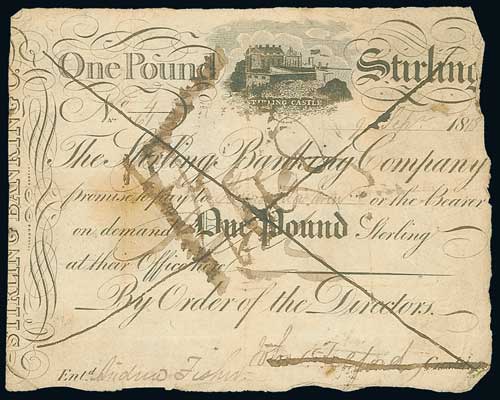 One Pound Stirling
STIRLING CASTLE
No 4
18
The Stirling Banking Company
promise to pay to or the Bearer
on demand One Pound Sterling
at their Office here
By Order of the Directors.
Entd. Andrew Fisher
STIRLING BANKING